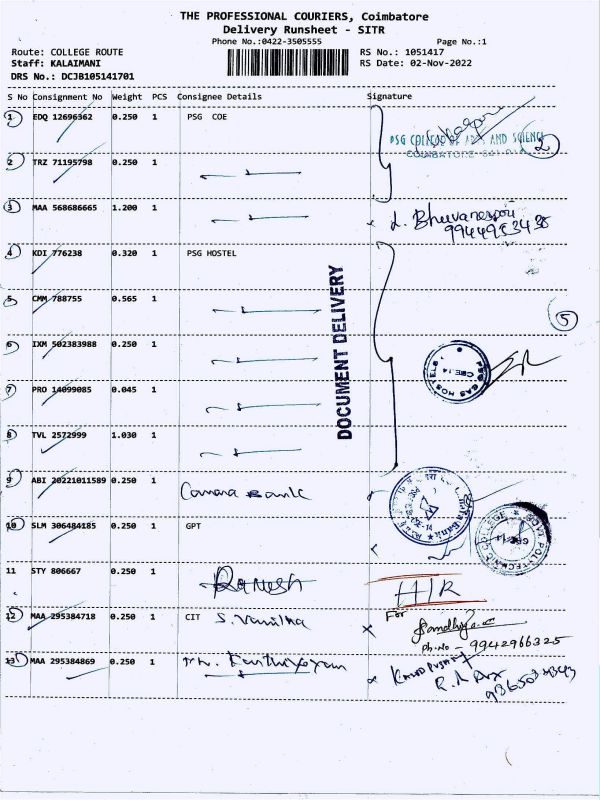 THE PROFESSIONAL COURIERS, Coimbatore
Delivery Runsheet - SITR
Phone No.:0422-3505555
Page No.:1
Route: COLLEGE ROUTE
RS No.: 1051417
Staff: KALAIMANI
RS Date: 02-Nov-2022
DRS No.: DCJB105141701
S No Consignment No Weight PCS Consignee Details Signature
1 EDQ 12696362 0.250 1 PSG COE
PSG COLLEGE OF ARTS AND SCIENCE
COIMBATORE
2
2 TRZ 71195798 0.250 1
3 MAA 568686665 1.200 1
L. Bhuvaneswari
9944953438
4 KDI 776238 0.320 1 PSG HOSTEL
DOCUMENT DELIVERY
5 CMM 788755 0.565 1
5
6 IXM 502383988 0.250 1
PSG CAS HOSTELS
CBE-14
7 PRO 14099085 0.045 1
8 TVL 2572999 1.030 1
9 ABI 20221011589 0.250 1 Canara Bank
10 SLM 306484185 0.250 1 GPT
GOVT POLYTECHNIC COLLEGE
CBE-14
11 STY 806667 0.250 1 Ramesh
H/R
12 MAA 295384718 0.250 1 CIT S. Vanitha
For
Sandhiya
Ph.No - 9942966325
13 MAA 295384869 0.250 1